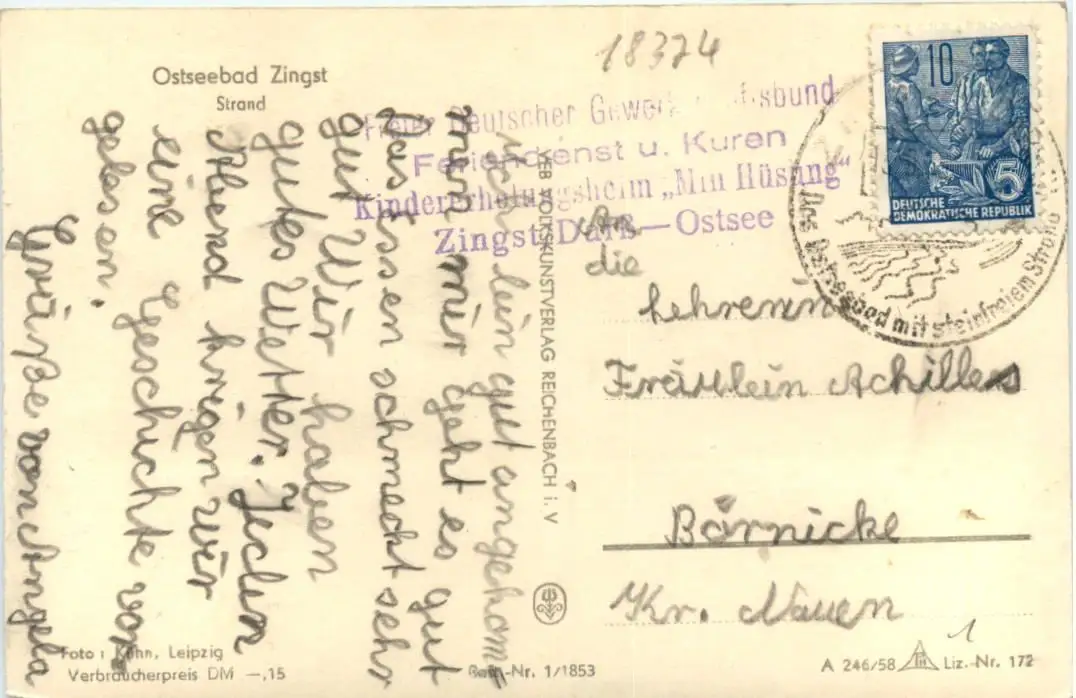 Ostseebad Zingst
Strand
18374
Freier Deutscher Gewerk sbund
Feriendienst u. Kuren
Kindererholungsheim „Min Hüsing"
Zingst/Darß—Ostsee
10
5
DEUTSCHE
DEMOKRATISCHE REPUBLIK
Das Ostseebad mit steinfreiem Strand
bin gut angekom-
men mir geht es gut
Das Essen schmeckt sehr
gut Wir haben
gutes Wetter. Jeden
Abend kriegen wir
eine Geschichte vor
gelesen.
Grüße von Angela
VEB VOLKSKUNSTVERLAG REICHENBACH i. V
An
die
Lehrerin
Fräulein Achilles
Börnicke
Kr. Nauen
Foto: Kühn, Leipzig
Verbraucherpreis DM —,15
Best.-Nr. 1/1853
A 246/58
Liz.-Nr. 172
1